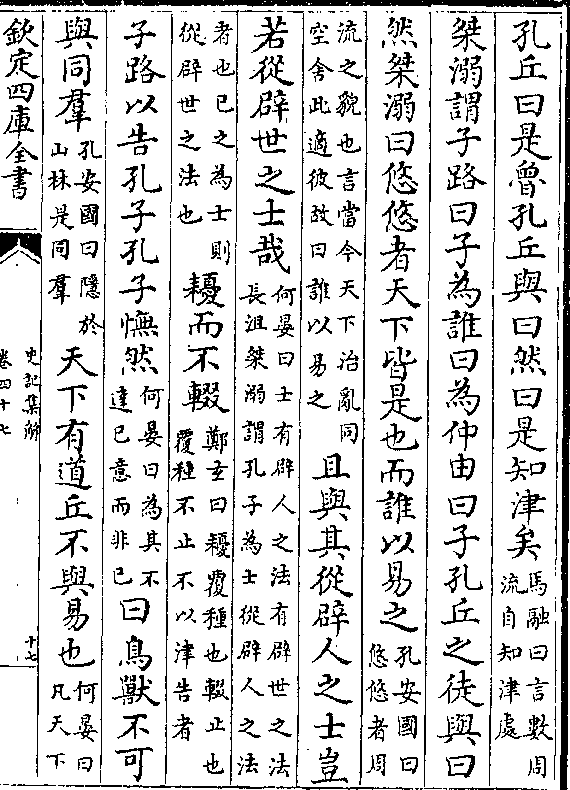 孔丘曰是魯孔丘與曰然曰是知津矣馬融曰言數周流自知津處
桀溺謂子路曰子為誰曰為仲由曰子孔丘之徒與曰
然桀溺曰悠悠者天下皆是也而誰以易之孔安國曰悠悠者周
流之貌也言當今天下治亂同空舍此適彼故曰誰以易之且與其從辟人之士豈
若從辟世之士哉何晏曰士有辟人之法有辟世之法長沮桀溺謂孔子為士從辟人之法
者也已之為士則從辟世之法也耰而不輟鄭玄曰耰覆種也輟止也覆種不止不以津告者
子路以告孔子孔子憮然何晏曰為其不達已意而非已曰鳥獸不可
與同羣孔安國曰隱於山林是同羣天下有道丘不與易也何晏曰凡天下
欽定四庫全書
史記集解
卷四十七
十七